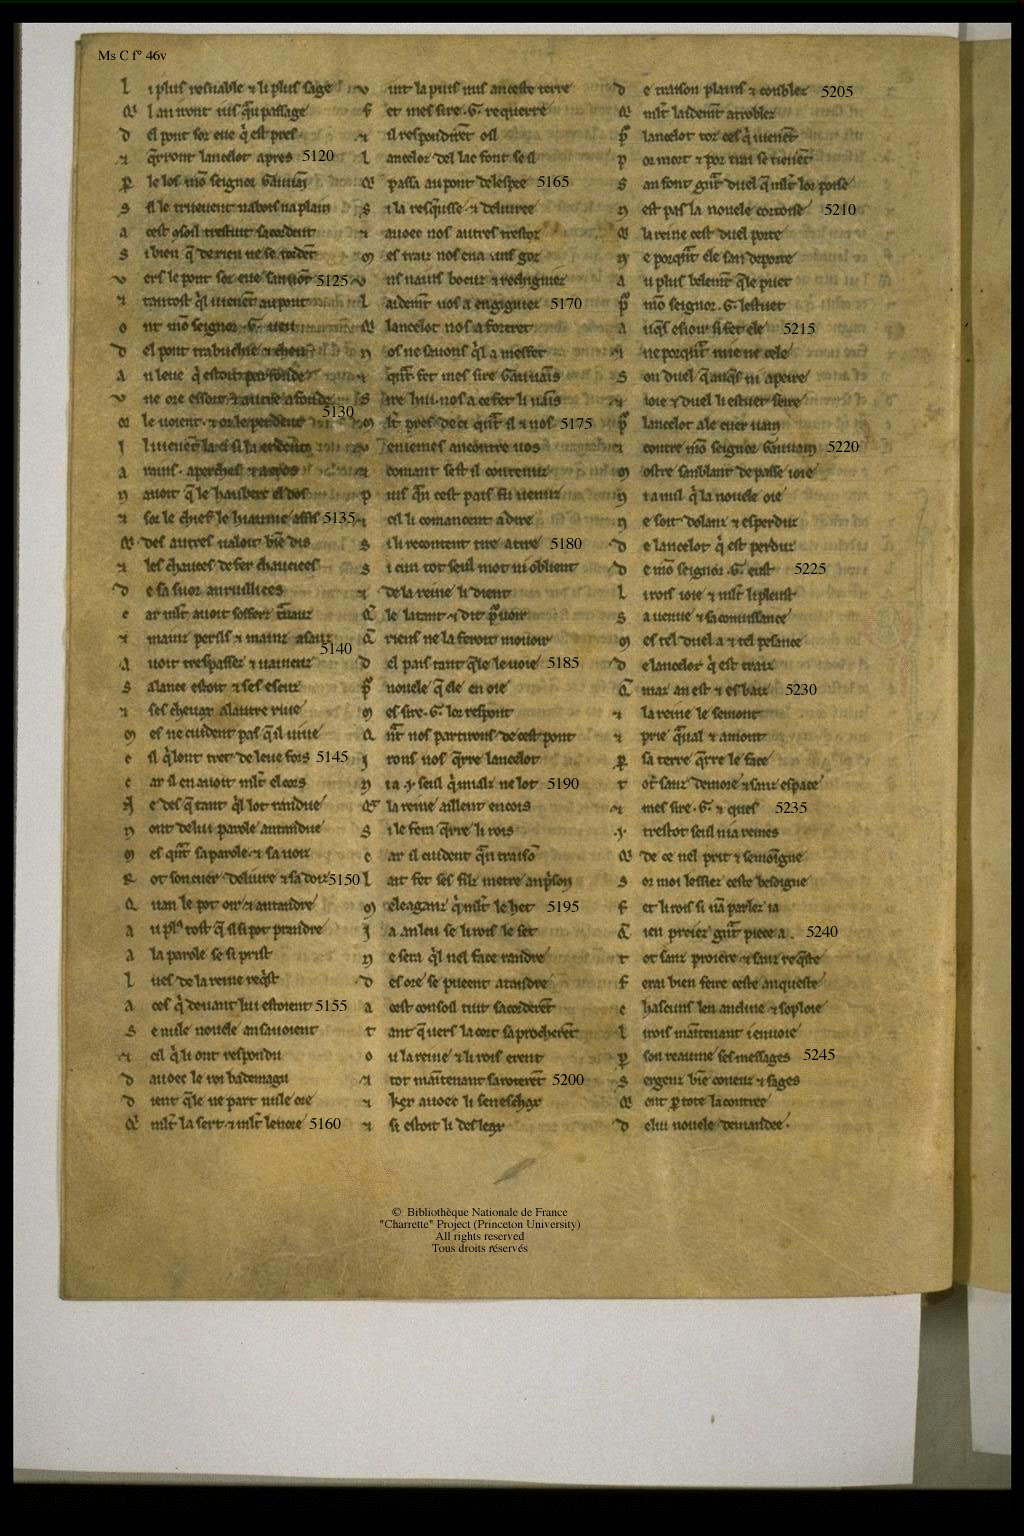 Ms C f° 46v
L i plus resnable ⁊ li plus sage
Q̃ l an iront tuit q̃u passage
D el pont soz eue q̇ est pres
⁊ q̃rront lancelot apres 5120
P̱ le los mõ seignor Gauuaĩ
S il le trueuent na bois na plain
A cest ꝯsoil trestuit sacordent
S i bien q̃ de rien ne se tordẽt
V ers le pont soz eue san uõt 5125
⁊ tantost q̇l uienẽt au pont
O nt mõ seignor .G. ueu
D el pont trabuchie ⁊ cheu
A n leue q̇ estoit parfonde
V ne ore essort ⁊ autre afonde
Or le uoient ⁊ or le perdent 5130
I l uienẽt la ⁊ si la erdent
A rains aperches ⁊ a cros
N auoit q̃ le hauberc el dos
⁊ sor le chief le hiaume assis 5135
Q̃ des autres ualoit biẽ dis
⁊ les chauces de fer chauciees
D e sa suor anruilliees
C ar ml̃t auoit soffert trauauz
⁊ mainz perilz ⁊ mainz asauz 5140
A uoit trespassez ⁊ uaincuz
S a lance estoit ⁊ ses escuz
⁊ ses cheuax a lautre riue
M es ne cuident pas q̃ il uiue
C il q̇ lont tret de leue fors 5145
C ar il en auoit ml̃t el cors
N e des q̃ tant q̇l lot randue
N ont de lui parole antandue
M es q̃nt sa parole ⁊ sa uoiz
R ot son cuer deliure ⁊ sa doiz 5150
Q uan le pot oir ⁊ antandre
A u plꝰ tost q̃ il si pot prandre
A la parole se si prist
L ues de la reine req̇st
A ces q̇ deuant lui estoient 5155
S e nule nouele an sauoient
⁊ cil q̇ li ont respondu
D auoec le roi bademagu
D ient q̃le ne part nule ore
Q̃ ml̃t la sert ⁊ ml̃t lenore 5160
V int la puis nus an ceste terre
F et mes sire .G. requerre
⁊ il respondirẽt oil
L ancelot del lac font se il
Q̃ passa au pont de lespee 5165
S i la resq̃usse ⁊ deliuree
⁊ auoec nos autres trestoz
M es traiz nos en a uns goz
V ns nains boçuz ⁊ rechigniez
L aidemt̃ nos a engigniez 5170
Q̃ lancelot nos a forstret
N os ne sauons q̇l a meffet
⁊ q̃nt fet mes sire Gauuains
S ire hui nos a ce fet li nains
M lt̃ pres de ci q̃nt il ⁊ nos 5175
V eniemes ancontre uos
⁊ comant sest il contenuz
P uis q̃n cest pais fu uenuz
⁊ cil li comancent a dire
S i li recontent tire a tire 5180
S i cun tot seul mot ni oblient
⁊ de la reine li dient
Q̃ le latant ⁊ dit pr uoir
Q̃ riens ne la feroit mouoir
D el pais tant q̃le le uoie 5185
P̃ nouele q̃ ele en oie
M es sire .G. lor respont
Q̃nt nos partirons de cest pont
I rons nos q̃rre lancelot
N i a .i. seul q̇ mialz ne lot 5190
Q̃ a la reine aillent encois
S i le fera q̃rre li rois
C ar il cuident q̃n traisõ
L ait fet ses filz metre an prison
M eleaganz q̇ ml̃t le het 5195
I a an leu se li rois le set
N e sera q̇l nel face randre
D es ore se pueent atandre
A cest consoil tuit sacorderẽt
T ant q̃ uers la cort saprocherẽt
O u la reine ⁊ li rois erent
⁊ tot maĩtenant saroterẽt 5200
⁊ kex auoec li seneschax
⁊ si estoit li desleax
D e traison plains ⁊ conblez 5205
Q̃ ml̃t laidemt̃ a troblez
P̃ lancelot toz ces q̇ uienẽt
P or mort ⁊ por trai se tienẽt
S an font grt̃ duel q̃ ml̃t lor poise
N est pas la nouele cortoise 5210
Q̃ la reine cest duel porte
N e porq̃nt ele san deporte
A u plus belemt̃ q̃le puet
P̃ mõ seignor .G. lestuet
A uq̃s esioir si fet ele 5215
⁊ ne porq̃nt mie ne cele
S on duel q̃ auq̃s ni apeire
⁊ ioie ⁊ duel li estuet feire
P̃ lancelot a le cuer uain
⁊ contre mõ seignor Gauuain 5220
M ostre sanblant de passe ioie
N i a nul q̇ la nouele oie
N e soit dolanz ⁊ esperduz
D e lancelot q̇ est perduz
D e mõ seignor .G. eust 5225
L i rois ioie ⁊ ml̃t li pleust
S a uenue ⁊ sa conuissance
M es tel duel a ⁊ tel pesance
D e lancelot q̇ est traiz
Q̃ maz an est ⁊ esbaiz 5230
⁊ la reine le semont
⁊ prie q̃ual ⁊ amont
P̱ sa terre q̃rre le face
T ot sanz demore ⁊ sanz espace
⁊ mes sire .G. ⁊ ques 5235
.I. trestot seul ni a remes
Q̃ de ce nel prit ⁊ semoigne
S or moi lessiez ceste besoigne
F et li rois si nã parlez ia
Q̃ ien preiez grt̃ piece a . 5240
T ot sanz proiere ⁊ sanz req̃ste
F erai bien feire ceste anqueste
C hascuns len ancline ⁊ soploie
L i rois maĩtenant i enuoie
P̱ son reaume ses messages 5245
S ergenz biẽ coneuz ⁊ sages
Q̃ ont p̱ tote la contree
D e lui nouele demandee.
© Bibliothèque Nationale de France
"Charrette" Project (Princeton University)
All rights reserved
Tous droits réservés